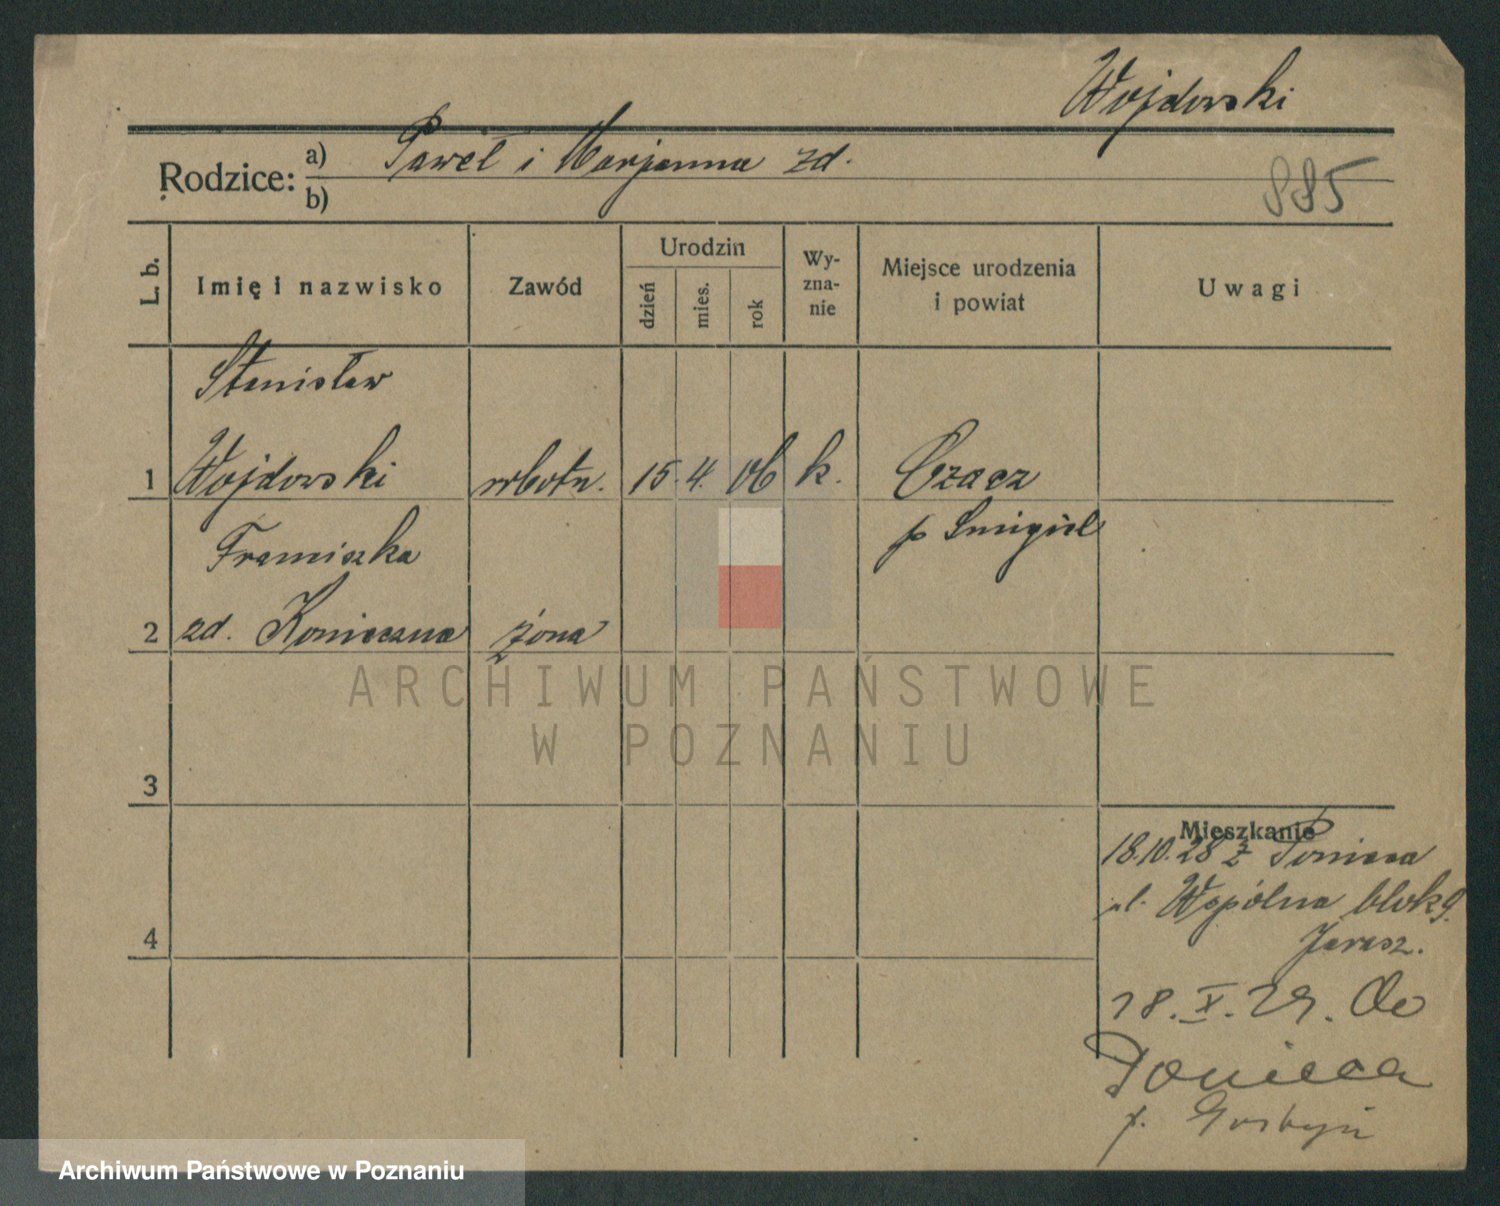 Wojdowski
Rodzice: a) Paweł i Marjanna zd.
b)
885
L. b.
Imię i nazwisko
Zawód
Urodzin
dzień
mies.
rok
Wy-
zna-
nie
Miejsce urodzenia
i powiat
Uwagi
Stanisław
1 Wojdowski robotn. 15. 4. 06 k. Czacz
p Śmigiel
Franciszka
2 zd. Konieczna żona
3
4
Mieszkanie
18.10.28 z Ponieca
ul. Wspólna blok 9.
Jarasz.
18. X. 29. Do
Ponieca
p. Gostyń
ARCHIWUM PAŃSTWOWE
W POZNANIU
Archiwum Państwowe w Poznaniu